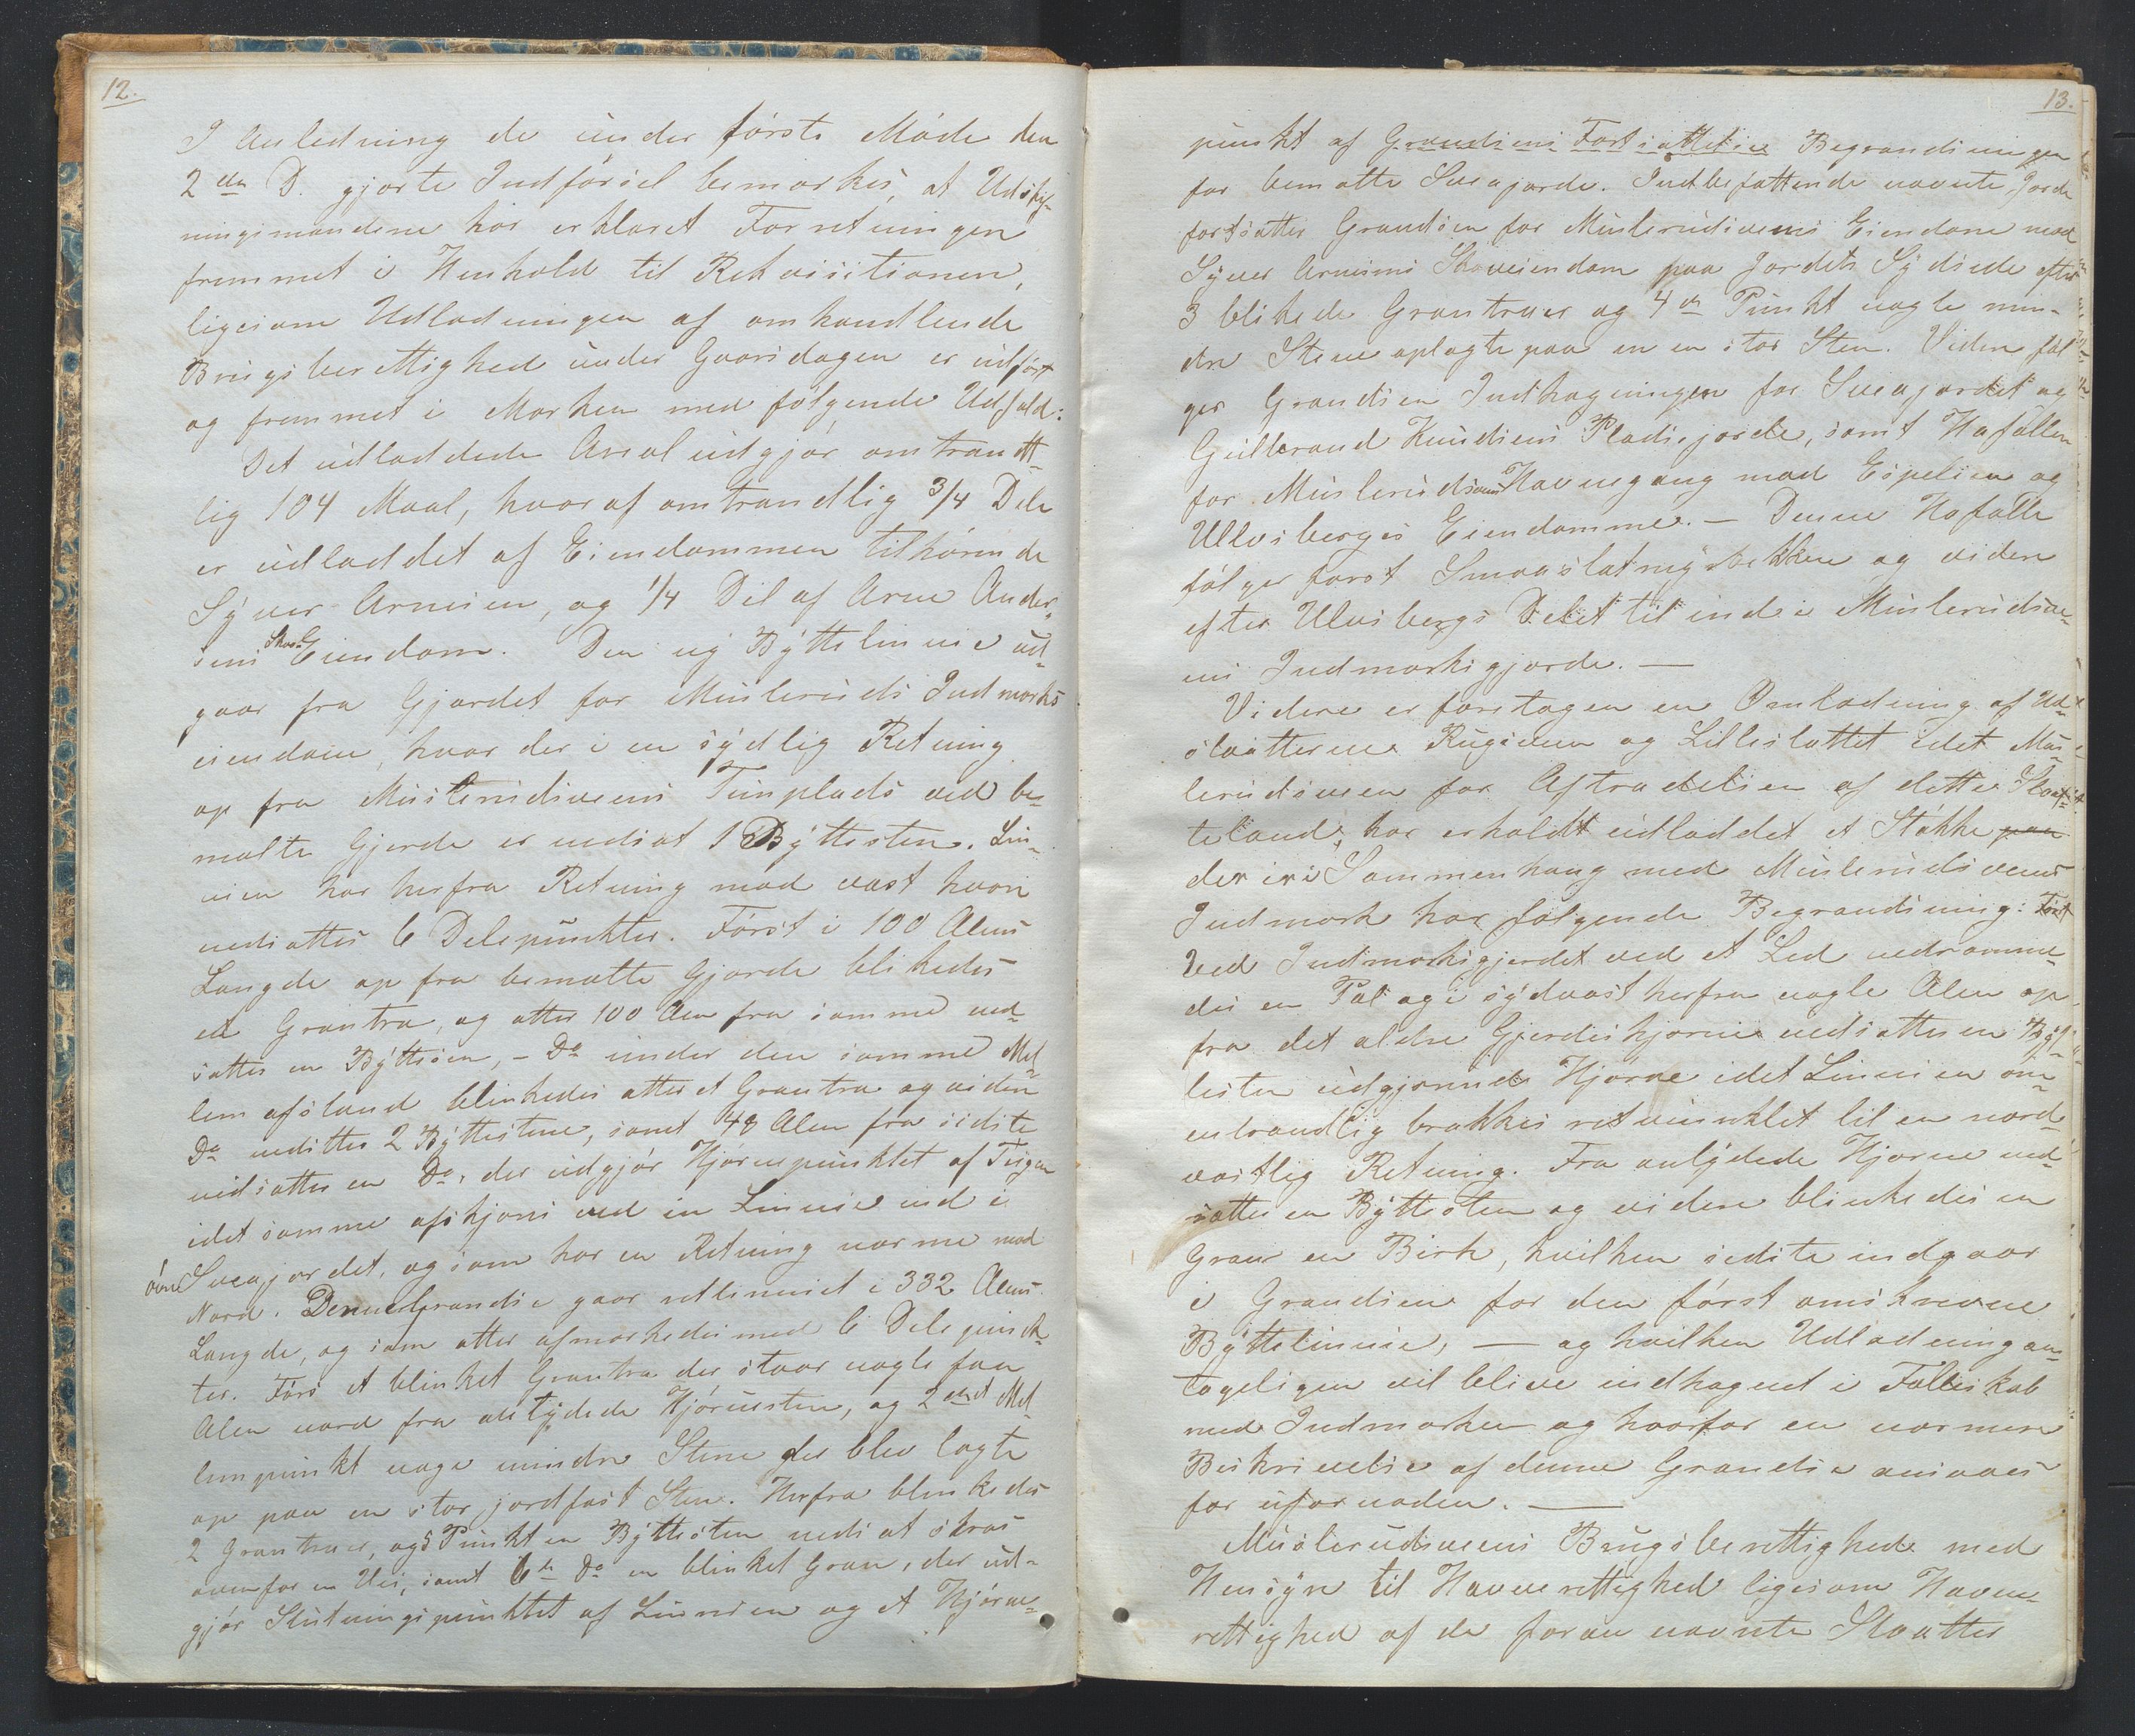 12.
I Anledning de under første Møde den
2den D. gjorte Indførsel bemærkes, at Udskif-
ningsmændene har erklæret Forretningen
fremmet i Henhold til Rekvisitionen,
ligesom Udlodningen af omhandlende
Brugsberettighed under Gaarsdagen er udført
og fremmet i Marken med følgende Udfald:
Det udloddede Areal udgjør omtrændt-
lig 104 Maal, hvoraf omtrændlig 3/4 Dele
er udloddet af Eiendommen tilhørende
Syver Arnesen, og 1/4 Del af Arne Ander-
sens Skov-Eiendom. Den ny Byttelinnie ud-
gaar fra Gjærdet for Muslerud's Indmarks
eiendom, hvor der i en sydlig Retning
op fra Musterudsveens Tunplads ved be-
mælte Gjerde er nedsat 1 Byttesten. Lin-
nien har herfra Retning mod vest hvori
nedsattes 6 Delepunkter. Først i 100 Alens
Længde op fra bemælte Gjærde blikedes
et Grantræ, og atter 100 Alen fra samme ned-
sattes en Byttsten, - Do under den samme Mel
lemafstand blinkedes atter et Grantræ og viden
Do nedsattes 2 Byttestene, samt 48 Alen fra sidste
nedsattes en Do, der udgjør Hjørnepunktet af Teigen
idet samme afskjæres ved en Linnie ind i
øvre Sveajordet, og som har en Retning nærme mod
Nord. Denne Grændse gaar retlinniet i 332 Alens
Længde, og som atter afmærkedes med 6 Delepunk-
ter. Førs et blinket Grantræ der staar nogle faa
Alen nord fra antydede Hjørnesten, og 2det Mel
lempunkt noge mindre Stene der blev lagte
op paa en stor jordfast Sten. Herfra blinkedes
2 Grantræer, og 5 Punkt en Byttesten nedsat skraas
ovenfor en Vei, samt 6te Do en blinket Gran, der ud-
gjør Slutningspunktet af Linnien og et Hjørne-
13.
punkt af Grændsens Fortsættelse Begrændsningen
for bemælte Sveajorde. Indbefattende nævnte Jorde
fortsætter Grændsen for Muslerudsveens Eiendom mod
Syver Arnesens Skoveiendom paa Jordets Sydside efter
3 blikede Grantræer og 4de Punkt nogle min-
dre Stene oplagte paa en en stor Sten. Viden føl
ger Grændsen Indhagningen for Sveajordet og
Gulbrand Knudsens Pladsejorde, samt Hafælle
for Muslerudsveens Havnegang mod Espelien og
Ulvsbergs Eiendomme. — Denne Hafælle
følger først Smaaslatningsbekken og videre
efter Ulvsbergs Delet til ind i Muslerudsve-
ens Indmarksgjærde. —
Videre er foretagen en Omlodning af Ud-
slaatterne Rugsveen og Lilleslættet idet Mus-
lerudsveen for Aftrædelsen af dette Slaat-
teland, har erholdt udloddet et Støkke paa
der er i Sammenhæng med Muslerudsveens
Indmark har følgende Begrændsning: Først
ved Indmarksgjerdet ved et Led nedramme-
des en Pæl og i sydvest herfra nogle Alen op
fra det ældre Gjerdeshjørne nedsattes en Byt-
testen udgjørende Hjørne idet Linnien om-
entrændlig brækkes retvinklet til en nord-
vestlig Retning. Fra antydede Hjørne ned-
sattes en Byttesten og videre blinkedes en
Gran en Birk, hvilken sidste indgaar
i Grændsen for den først omskrevne
Byttelinnie, — og hvilken Udlodning an-
tageligen vil blive indhagnet i Fælleskab
med Indmarken og hvorfor en nærmere
Beskrivelse af denne Grændse ansaaes
for ufornøden. —
Muslerudsveens Brugsberettighed med
Hensyn til Havnerettighed ligesom Havne-
rettighed af de foran nævnte Slaatter